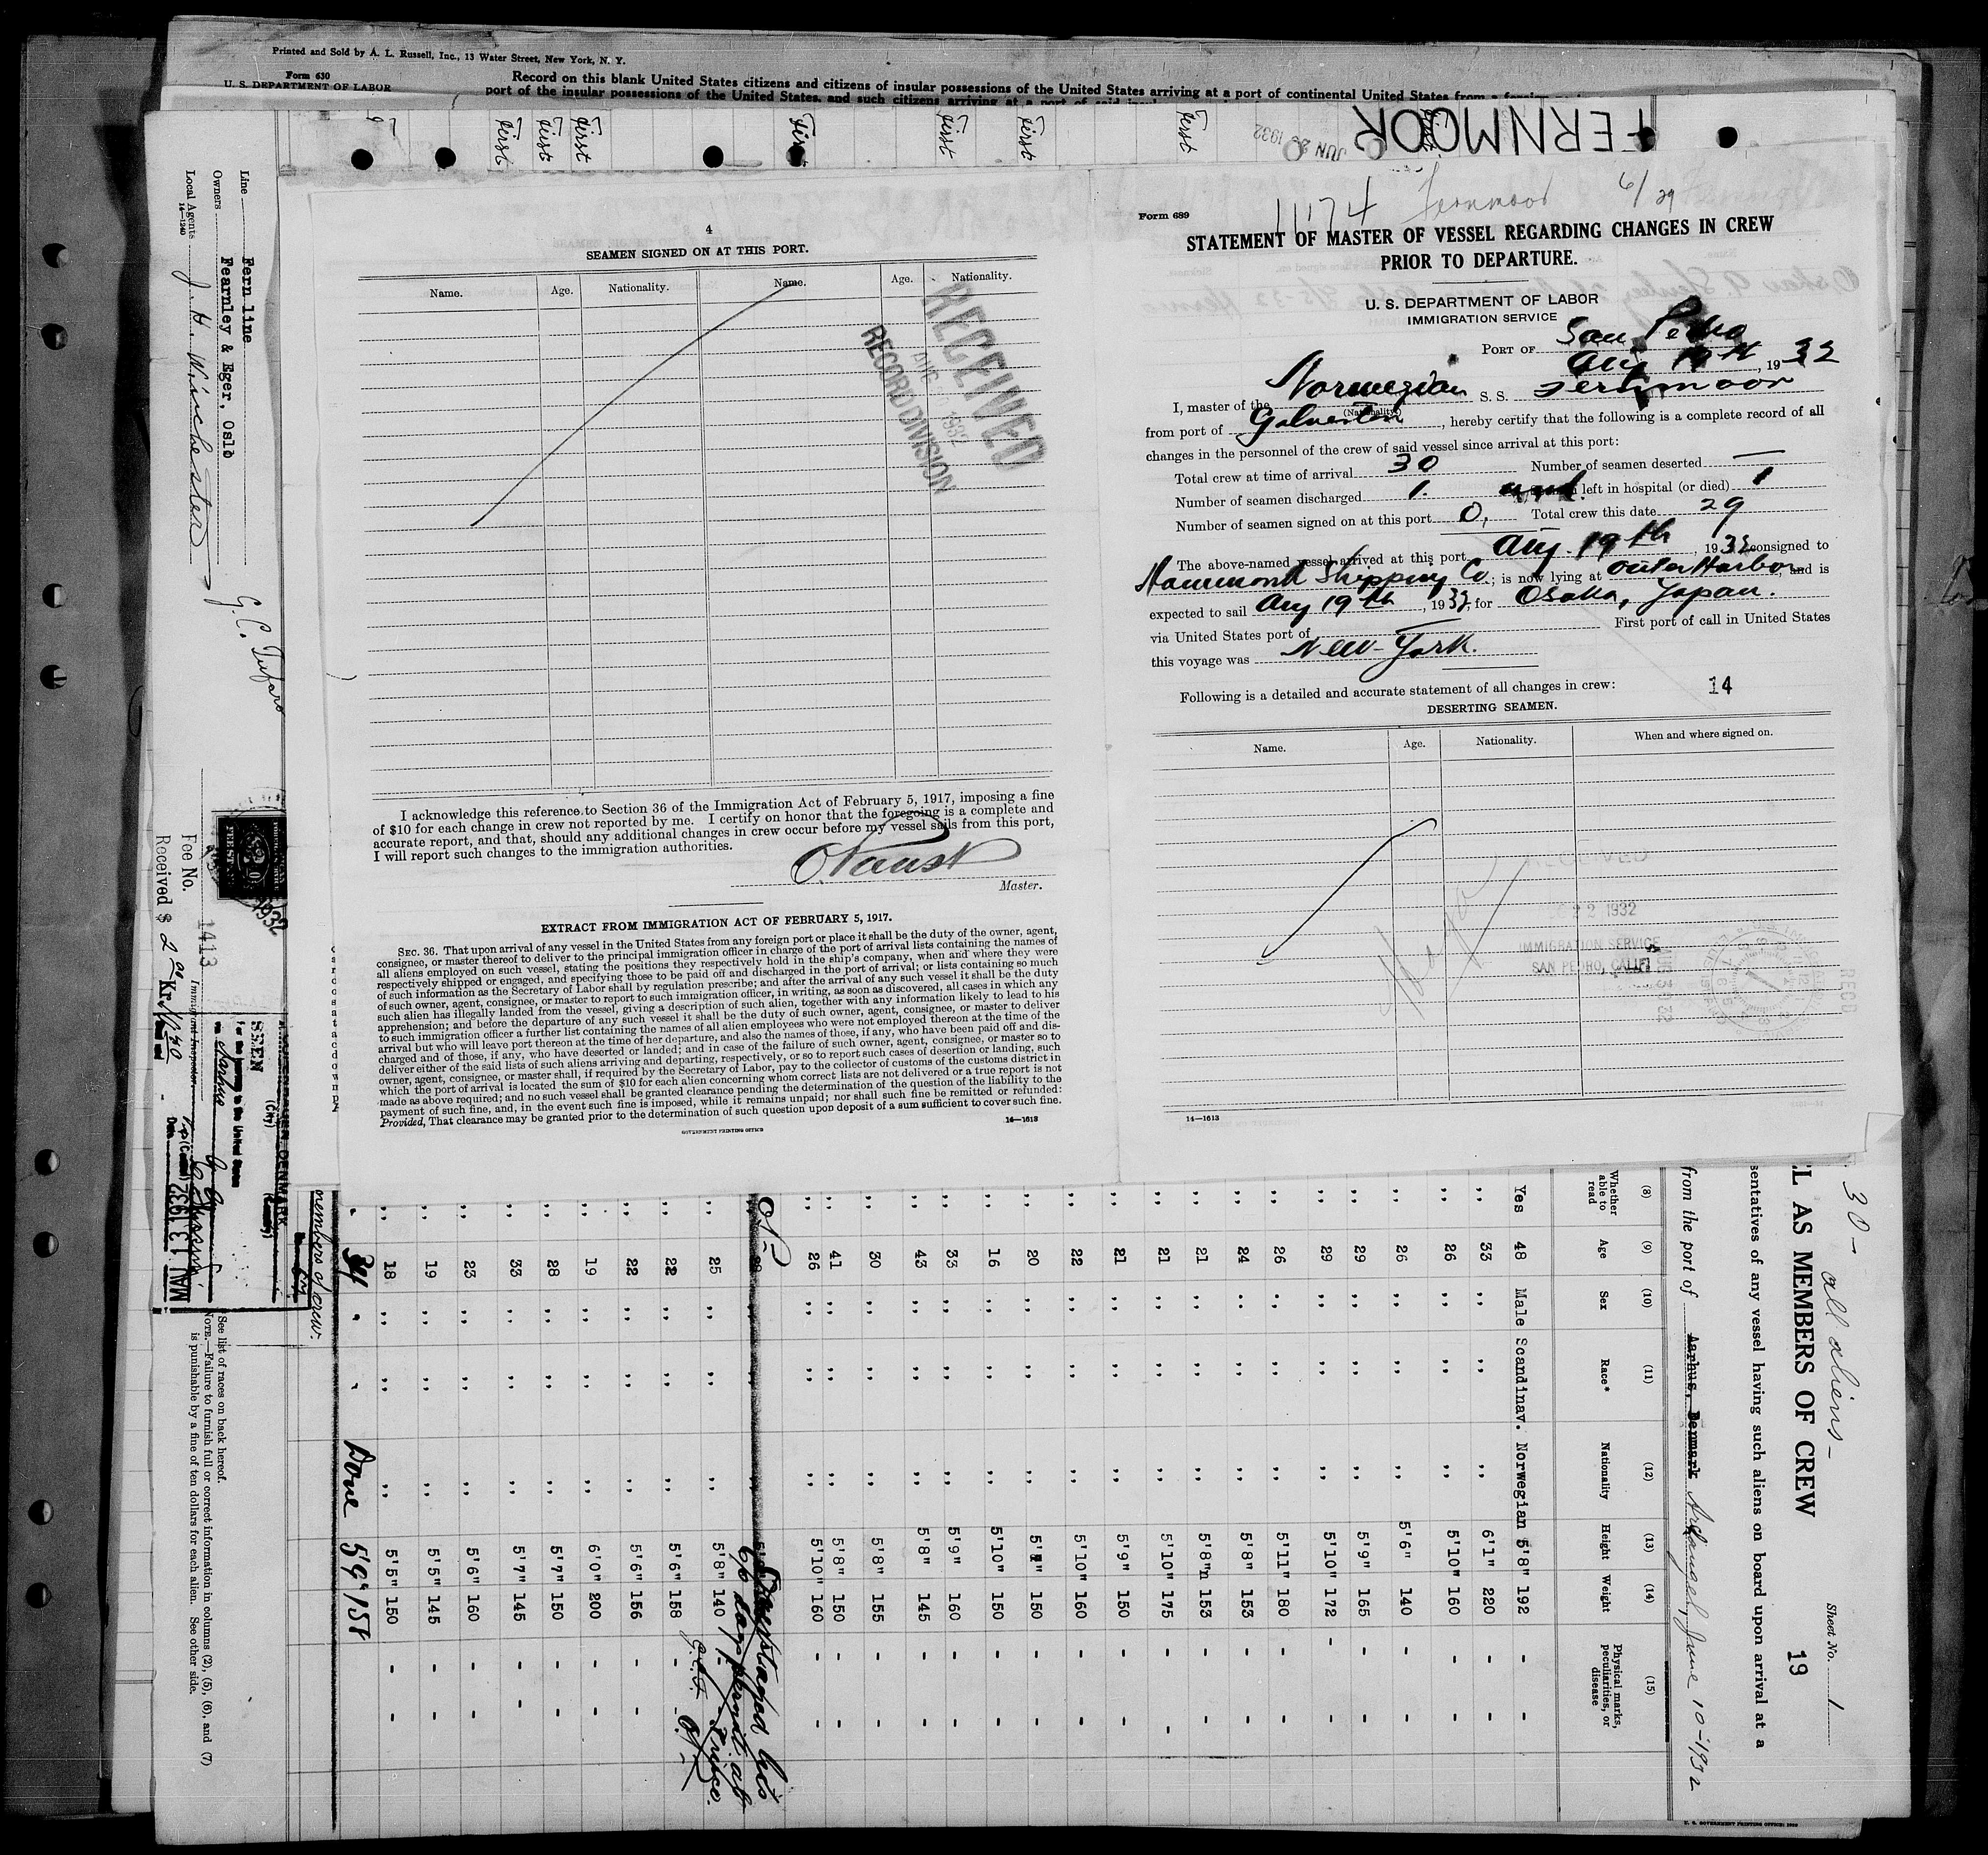 Printed and Sold by A. L. Russell, Inc., 13 Water Street, New York, N. Y.
Form 630
U. S. DEPARTMENT OF LABOR
Record on this blank United States citizens and citizens of insular possessions of the United States arriving at a port of continental United States from a foreign
port of the insular possessions of the United States, and such citizens arriving at a port of said
First
First
First
First
First
First
First
JUN 1932
FERNMOOR
Line Fern line
Owners Fearnley & Eger, Oslo
Local Agents J. H. Winchester
14-1240
4
SEAMEN SIGNED ON AT THIS PORT.
Name. Age. Nationality. Name. Age. Nationality.
RECEIVED
1932
RECORD DIVISION
I acknowledge this reference to Section 36 of the Immigration Act of February 5, 1917, imposing a fine
of $10 for each change in crew not reported by me. I certify on honor that the foregoing is a complete and
accurate report, and that, should any additional changes in crew occur before my vessel sails from this port,
I will report such changes to the immigration authorities.
Master.
EXTRACT FROM IMMIGRATION ACT OF FEBRUARY 5, 1917.
SEC. 36. That upon arrival of any vessel in the United States from any foreign port or place it shall be the duty of the owner, agent,
consignee, or master thereof to deliver to the principal immigration officer in charge of the port of arrival lists containing the names of
all aliens employed on such vessel, stating the positions they respectively hold in the ship's company, when and where they were
respectively shipped or engaged, and specifying those to be paid off and discharged in the port of arrival; or lists containing so much
of such information as the Secretary of Labor shall by regulation prescribe; and after the arrival of any such vessel it shall be the duty
of such owner, agent, consignee, or master to report to such immigration officer, in writing, as soon as discovered, all cases in which any
such alien has illegally landed from the vessel, giving a description of such alien, together with any information likely to lead to his
apprehension; and before the departure of any such vessel it shall be the duty of such owner, agent, consignee, or master to deliver
to such immigration officer a further list containing the names of all alien employees who were not employed thereon at the time of the
arrival but who will leave port thereon at the time of her departure, and also the names of those, if any, who have been paid off and dis-
charged and of those, if any, who have deserted or landed; and in case of the failure of such owner, agent, consignee, or master so to
deliver either of the said lists of such aliens arriving and departing, respectively, or so to report such cases of desertion or landing, such
owner, agent, consignee, or master shall, if required by the Secretary of Labor, pay to the collector of customs of the customs district in
which the port of arrival is located the sum of $10 for each alien concerning whom correct lists are not delivered or a true report is not
made as above required; and no such vessel shall be granted clearance pending the determination of the question of the liability to the
payment of such fine, and, in the event such fine is imposed, while it remains unpaid; nor shall such fine be remitted or refunded:
Provided, That clearance may be granted prior to the determination of such question upon deposit of a sum sufficient to cover such fine.
GOVERNMENT PRINTING OFFICE
14-1613
Form 689
11174 Fernmoor 6/29
STATEMENT OF MASTER OF VESSEL REGARDING CHANGES IN CREW
PRIOR TO DEPARTURE.
U. S. DEPARTMENT OF LABOR
IMMIGRATION SERVICE
PORT OF San Pedro
Aug 19th, 1932
I, master of the Norwegian S. S. Fernmoor
(Nationality)
from port of Galveston, hereby certify that the following is a complete record of all
changes in the personnel of the crew of said vessel since arrival at this port:
Total crew at time of arrival 30 Number of seamen deserted —
Number of seamen discharged 1. left in hospital (or died) 1
Number of seamen signed on at this port 0, Total crew this date 29
The above-named vessel arrived at this port Aug. 19th, 1932 consigned to
Hammond Shipping Co.; is now lying at Outer Harbor, and is
expected to sail Aug 19th, 1932, for Osaka, Japan.
via United States port of — First port of call in United States
this voyage was New-York.
Following is a detailed and accurate statement of all changes in crew: 14
DESERTING SEAMEN.
Name. Age. Nationality. When and where signed on.
22 1932
IMMIGRATION SERVICE
SAN PEDRO, CALIF.
14-1613
30 - all aliens -
Sheet No. 1
L AS MEMBERS OF CREW 19
sentatives of any vessel having such aliens on board upon arrival at a
from the port of Aarhus, Denmark Archangel, June 10-1932
(8) (9) (10) (11) (12) (13) (14) (15)
Whether able to read Age Sex Race* Nationality Height Weight Physical marks, peculiarities, or disease
Yes 48 Male Scandinav. Norwegian 5'8" 192 - -
" 33 " " " 6'1" 220 - -
" 26 " " " 5'10" 160 - -
" 26 " " " 5'6" 140 - -
" 29 " " " 5'9" 165 - -
" 29 " " " 5'10" 172 - -
" 26 " " " 5'11" 180 - -
" 24 " " " 5'8" 153 - -
" 21 " " " 5'8" 153 - -
" 21 " " " 5'10" 175 - -
" 21 " " " 5'9" 150 - -
" 22 " " " 5'10" 160 - -
" 20 " " " 150 - -
" 16 " " " 5'10" 150 - -
" 33 " " " 5'9" 160 - -
" 43 " " " 5'8" 145 - -
" 30 " " " 5'8" 155 - -
" 41 " " " 5'8" 150 - -
" 26 " " " 5'10" 160 - -
Overstayed his
60 day permit at
" 25 " " " 5'8" 140
" 22 " " " 5'6" 158
" 22 " " " 5'6" 156 - -
" 19 " " " 6'0" 200 - -
" 28 " " " 5'7" 150 - -
" 33 " " " 5'7" 145 - -
" 23 " " " 5'6" 160 - -
" 19 " " " 5'5" 145 - -
" 18 " " " 5'5" 150 - -
34 " " Done 5'9" 158
members of crew.
Fee No. 1413
Received $ 2
Immigrant Inspector.
SEEN
For the journey to the United States
DENMARK
(City) (Country)
Date MAY 13 1932
See list of races on back hereof.
NOTE.—Failure to furnish full or correct information in columns (2), (5), (6), and (7)
is punishable by a fine of ten dollars for each alien. See other side.
U. S. GOVERNMENT PRINTING OFFICE